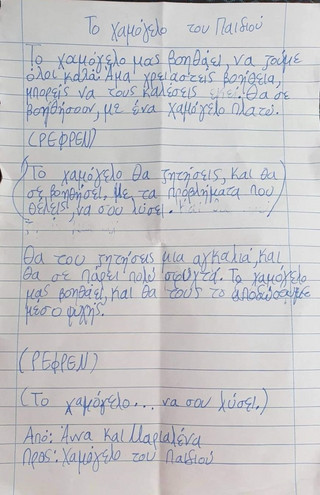 Το χαμόγελο του Παιδιού
Το χαμόγελο μας βοηθάει, να ζούμε
όλοι καλά. Άμα χρειαστείς βοήθεια,
μπορείς να τους καλέσεις εκεί. Θα σε
βοηθήσουν, με ένα χαμόγελο πλατύ.
(ΡΕΦΡΕΝ)
(Το χαμόγελο θα ζητήσεις, και θα
σε βοηθήσει. Με τα προβλήματα που
θέλεις, να σου λύσει.)
Θα του ζητήσεις μια αγκαλιά, και
θα σε πάρει πολύ σφυχτά. Το χαμόγελο
μας βοηθάει, και θα τους το
μέσο ψυχής.
(ΡΕΦΡΕΝ)
(Το χαμόγελο... να σου λύσει.)
Από: Άννα και Μαριαλένα
Προς: Χαμόγελο του Παιδιού